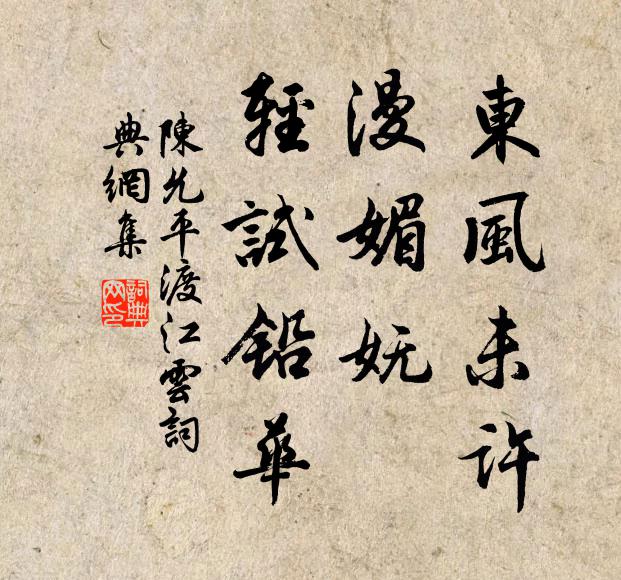 東風未許
漫媚妩
輕試鉛華
陳允平渡江雲詞
典網集
詞典網印